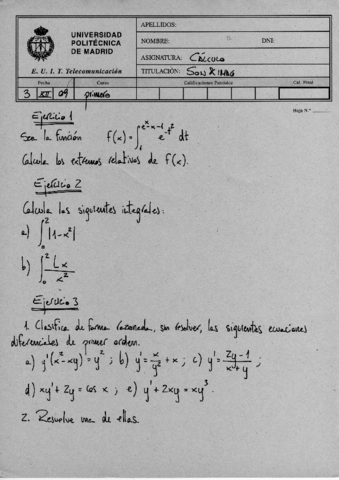 UNIVERSIDAD
POLITÉCNICA
DE MADRID
E. U. I. T. Telecomunicación
APELLIDOS:
NOMBRE: DNI:
ASIGNATURA: Cálculo
TITULACIÓN: Son e Imag
Fecha Curso Calificaciones Parciales Cal. Final
3 XII 09 primero
Hoja N.º
Ejercicio 1
Sea la función f(x) = ∫₁^(e^x - x - 1) e^(-t²) dt
Calcula los extremos relativos de f(x).
Ejercicio 2
Calcula las siguientes integrales:
a) ∫₀² |1-x²|
b) ∫₀² Lx / x²
Ejercicio 3
1. Clasifica de forma razonada, sin resolver, las siguientes ecuaciones
diferenciales de primer orden.
a) y'(x²-xy) = y²; b) y' = x/y² + x; c) y' = (2y-1)/(x+y);
d) xy' + 2y = cos x; e) y' + 2xy = xy³.
2. Resuelve una de ellas.